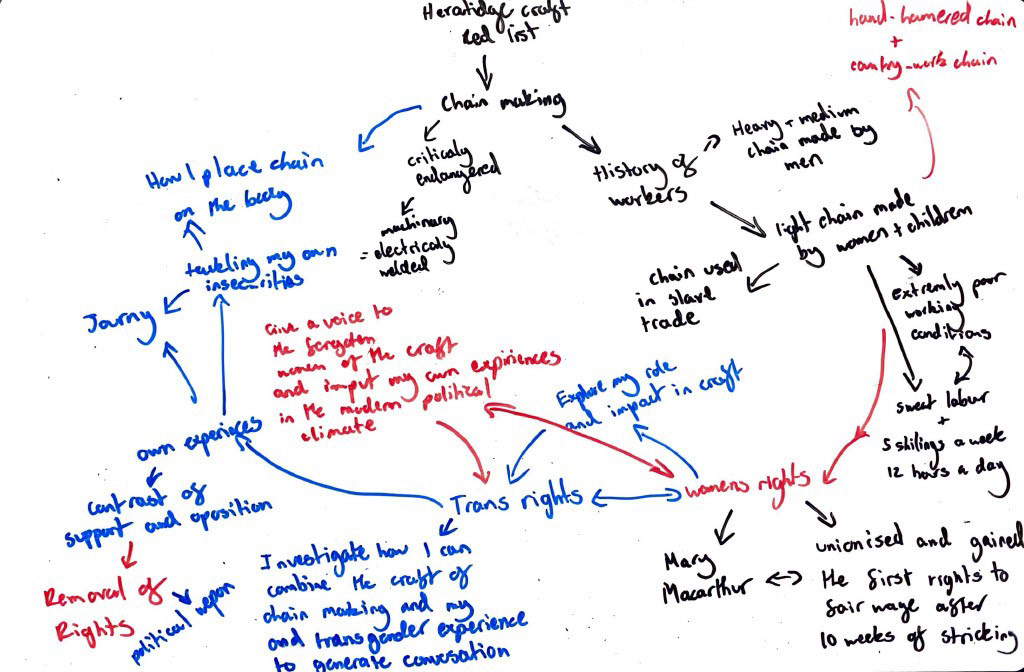 Heratidge craft
Red list
Chain making
criticaly
endangered
machinary
= electricaly
welded
History of
workers
Heavy + medium
chain made by
men
light chain made
by women + children
hand-hamered chain
+
country-work chain
chain used
in slave
trade
Extremly poor
working
conditions
sweet labur
+
5 shilings a week
12 hours a day
How I place chain
on the body
tackling my own
insecurities
Journy
own experiences
contrast of
support and oposition
Removal of
Rights
political wepon
Give a voice to
the forgoten
women of the craft
and imput my own expiriences
in the modern political
climate
Explore my role
and impact in craft
Trans rights
womens rights
Investigate how I can
combine the craft of
chain making and my
and transgender experience
to generate convosation
Mary
Macarthur
unionised and gained
the first rights to
fair wage after
10 weeks of stricking